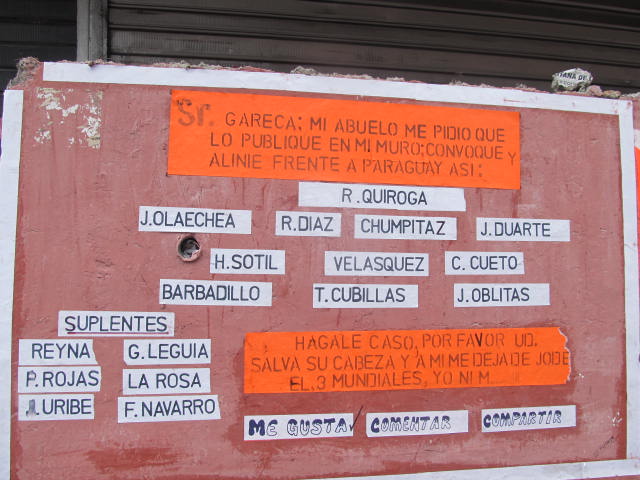 TANA DE
Sr. GARECA: MI ABUELO ME PIDIO QUE
LO PUBLIQUE EN MI MURO; CONVOQUE Y
ALINIE FRENTE A PARAGUAY ASI:
R. QUIROGA
J. OLAECHEA R. DIAZ CHUMPITAZ J. DUARTE
H. SOTIL VELASQUEZ C. CUETO
BARBADILLO T. CUBILLAS J. OBLITAS
SUPLENTES
REYNA G. LEGUIA
P. ROJAS LA ROSA
J. URIBE F. NAVARRO
HAGALE CASO, POR FAVOR UD.
SALVA SU CABEZA Y A MI ME DEJA DE JODE
EL. 3 MUNDIALES, YO NI M
ME GUSTA COMENTAR COMPARTIR